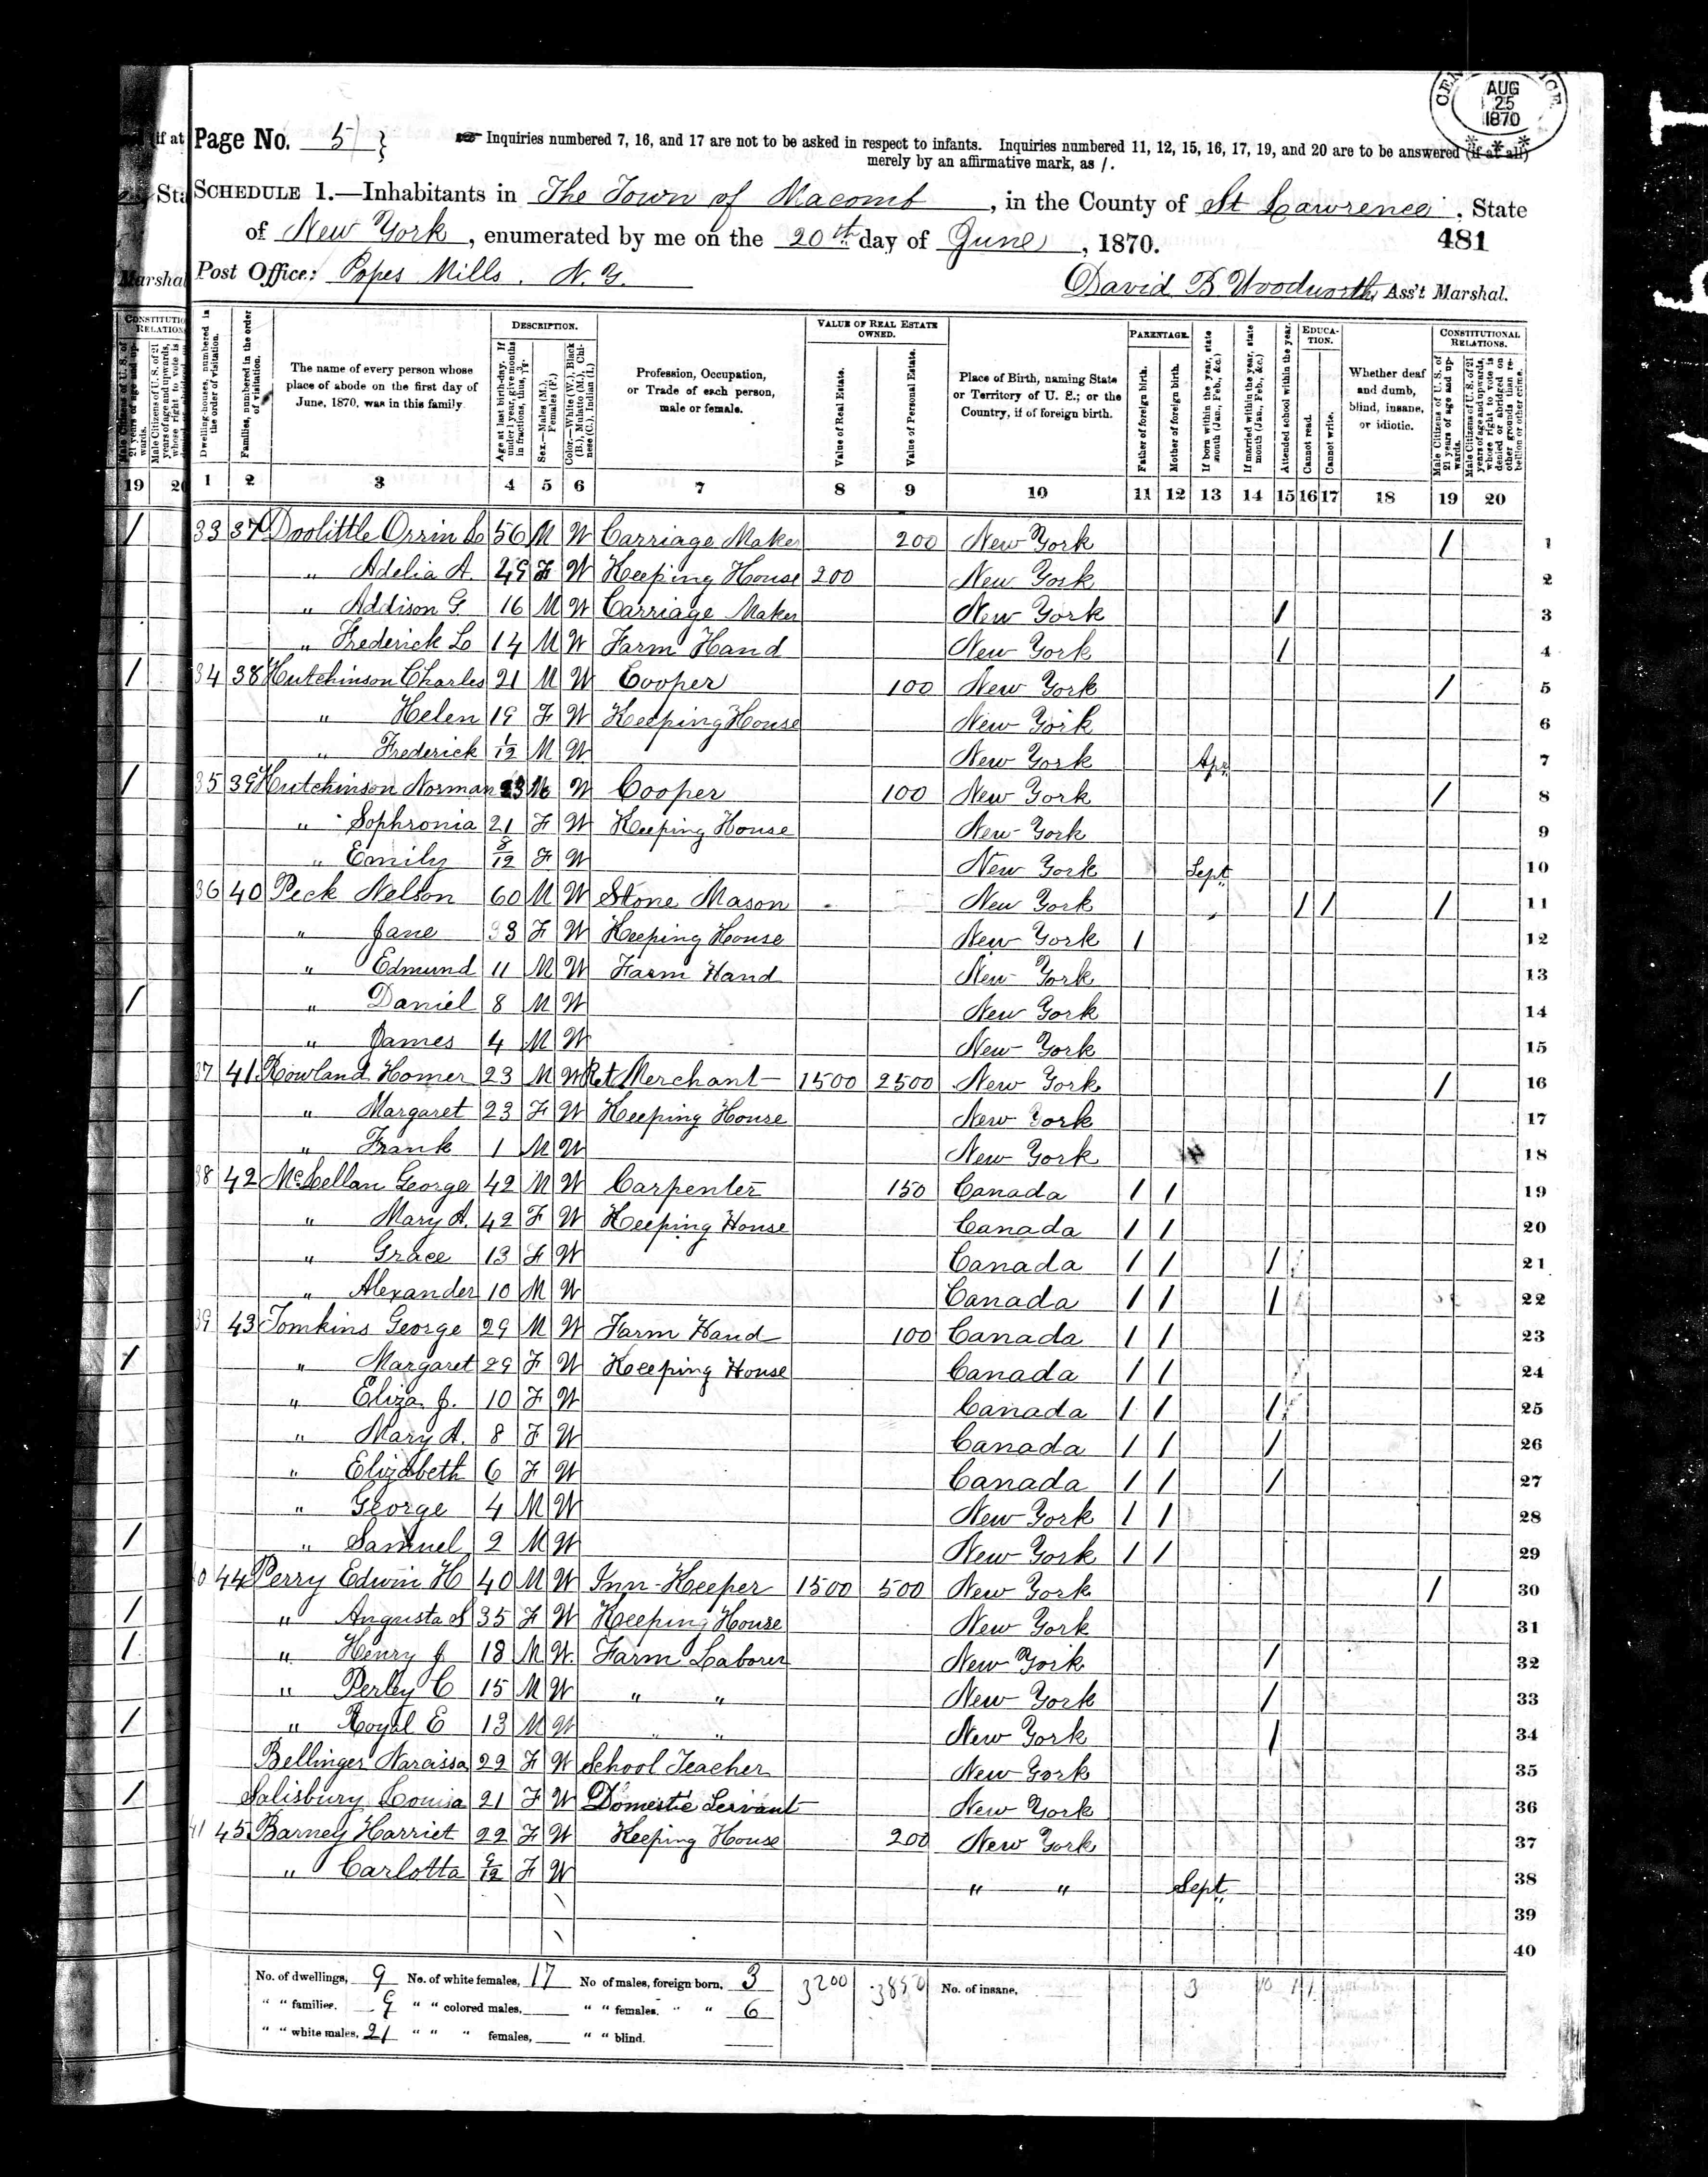 CENSUS OFFICE
AUG
25
1870
Page No. 5
Inquiries numbered 7, 16, and 17 are not to be asked in respect to infants. Inquiries numbered 11, 12, 15, 16, 17, 19, and 20 are to be answered (if at all)
merely by an affirmative mark, as /.
SCHEDULE 1.—Inhabitants in The Town of Macomb, in the County of St Lawrence, State
of New York, enumerated by me on the 20th day of June, 1870.
481
Post Office: Popes Mills. N. Y.
David B Woodworth, Ass't Marshal.
Dwelling-houses, numbered in the order of visitation.
Families, numbered in the order of visitation.
The name of every person whose place of abode on the first day of June, 1870, was in this family.
DESCRIPTION.
Age at last birth-day. If under 1 year, give months in fractions, thus, 3/12.
Sex.—Males (M.), Females (F.)
Color.—White (W.), Black (B.), Mulatto (M.), Chinese (C.), Indian (I.)
Profession, Occupation, or Trade of each person, male or female.
VALUE OF REAL ESTATE OWNED.
Value of Real Estate.
Value of Personal Estate.
Place of Birth, naming State or Territory of U. S.; or the Country, if of foreign birth.
PARENTAGE.
Father of foreign birth.
Mother of foreign birth.
If born within the year, state month (Jan., Feb., &c.)
If married within the year, state month (Jan., Feb., &c.)
Attended school within the year.
EDUCATION.
Cannot read.
Cannot write.
Whether deaf and dumb, blind, insane, or idiotic.
CONSTITUTIONAL RELATIONS.
Male Citizens of U. S. of 21 years of age and upwards.
Male Citizens of U. S. of 21 years of age and upwards, whose right to vote is denied or abridged on other grounds than rebellion or other crime.
19 20 1 2 3 4 5 6 7 8 9 10 11 12 13 14 15 16 17 18 19 20
33 37 Doolittle Orrin 56 M W Carriage Maker 200 New York / 1
" Adelia A. 49 F W Keeping House 200 New York 2
" Addison G. 16 M W Carriage Maker New York / 3
" Frederick 14 M W Farm Hand New York / 4
34 38 Hutchinson Charles 21 M W Cooper 100 New York / 5
" Helen 19 F W Keeping House New York 6
" Frederick 1/12 M W New York Apr 7
35 39 Hutchinson Norman 23 M W Cooper 100 New York / 8
" Sophronia 21 F W Keeping House New York 9
" Emily 8/12 F W New York Sept 10
36 40 Peck Nelson 60 M W Stone Mason New York / / / 11
" Jane 33 F W Keeping House New York / 12
" Edmund 11 M W Farm Hand New York 13
" Daniel 8 M W New York 14
" James 4 M W New York 15
37 41 Rowland Homer 23 M W Ret Merchant 1500 2500 New York / 16
" Margaret 23 F W Keeping House New York 17
" Frank 1 M W New York 18
38 42 McLellan George 42 M W Carpenter 150 Canada / / 19
" Mary A. 42 F W Keeping House Canada / / 20
" Grace 13 F W Canada / / / 21
" Alexander 10 M W Canada / / / 22
39 43 Tomkins George 29 M W Farm Hand 100 Canada / / 23
" Margaret 29 F W Keeping House Canada / / 24
" Eliza J. 10 F W Canada / / / 25
" Mary A. 8 F W Canada / / / 26
" Elizabeth 6 F W Canada / / / 27
" George 4 M W New York / / 28
" Samuel 2 M W New York / / 29
40 44 Perry Edwin H 40 M W Inn-Keeper 1500 500 New York / 30
" Augusta S 35 F W Keeping House New York 31
" Henry J 18 M W Farm Laborer New York / 32
" Perley C 15 M W " " New York / 33
" Royal E 13 M W " " New York / 34
Bellinger Narcissa 22 F W School Teacher New York 35
Salisbury Louisa 21 F W Domestic Servant New York 36
41 45 Barney Harriet 22 F W Keeping House 200 New York 37
" Carlotta 9/12 F W " " Sept 38
39
40
No. of dwellings, 9 No. of white females, 17 No of males, foreign born, 3 3200 3850 No. of insane, 3 10 1 1
" " families. 9 " " colored males, " " females. " " 6
" " white males, 21 " " " females, " " blind.